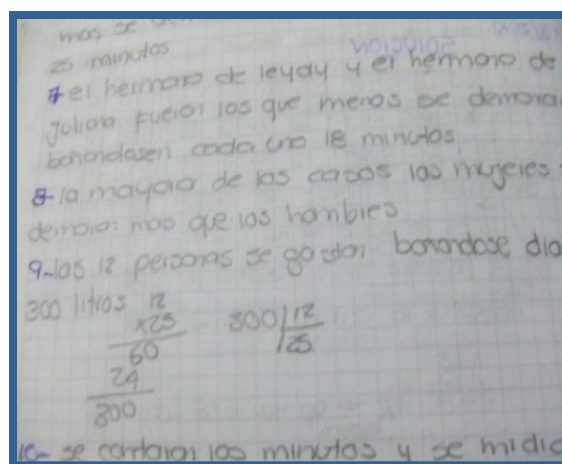 mas se
25 minutos
7 el hermano de leyay y el hermano de
juliana fueron los que menos se demora
banandosen cada uno 18 minutos
8-la mayoria de los casos las mujeres
demoran mas que los hombres
9-las 12 personas se gastan banandose dia
300 litros 12
x25 300 12
60 25
24
300
10- se contaron los minutos y se midio